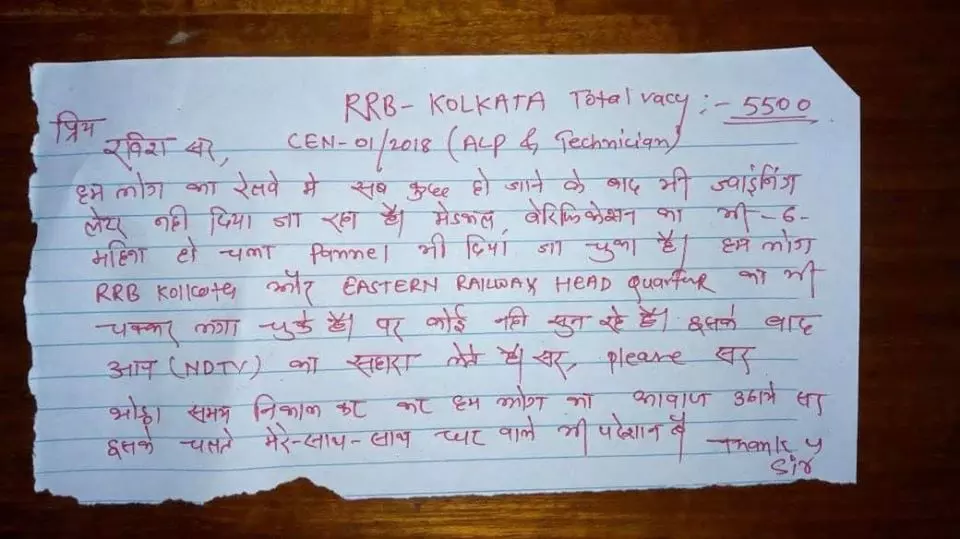 RRB- KOLKATA Total vacy :- 5500
प्रिय
रविश सर, CEN-01/2018 (ALP & Technician)
हम लोग का रेलवे मे सब कुछ हो जाने के बाद भी ज्वाइंनिंग
लेटर नही दिया जा रहा है। मेडकल, वेरिफिकेशन का भी -6-
महिना हो चला Pannel भी दिया जा चुका है। हम लोग
RRB Kolkata और EASTERN RAILWAY HEAD Quarter का भी
चक्कर लगा चुके है। पर कोई नही सुन रहे है। इसके बाद
आप (NDTV) का सहारा लेते है। सर, please सर
थोड़ा समय निकाल कर कर हम लोग का आवाज उठाये सर
इसके चलते मेरे-साथ-साथ घर वाले भी परेशान है
Thank y
Sir